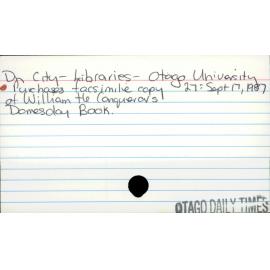 Dn City - Libraries - Otago University
• Purchases facsimilie copy 27: Sept 17, 1987
of William the Conqueror's
Domesday Book.
OTAGO DAILY TIMES